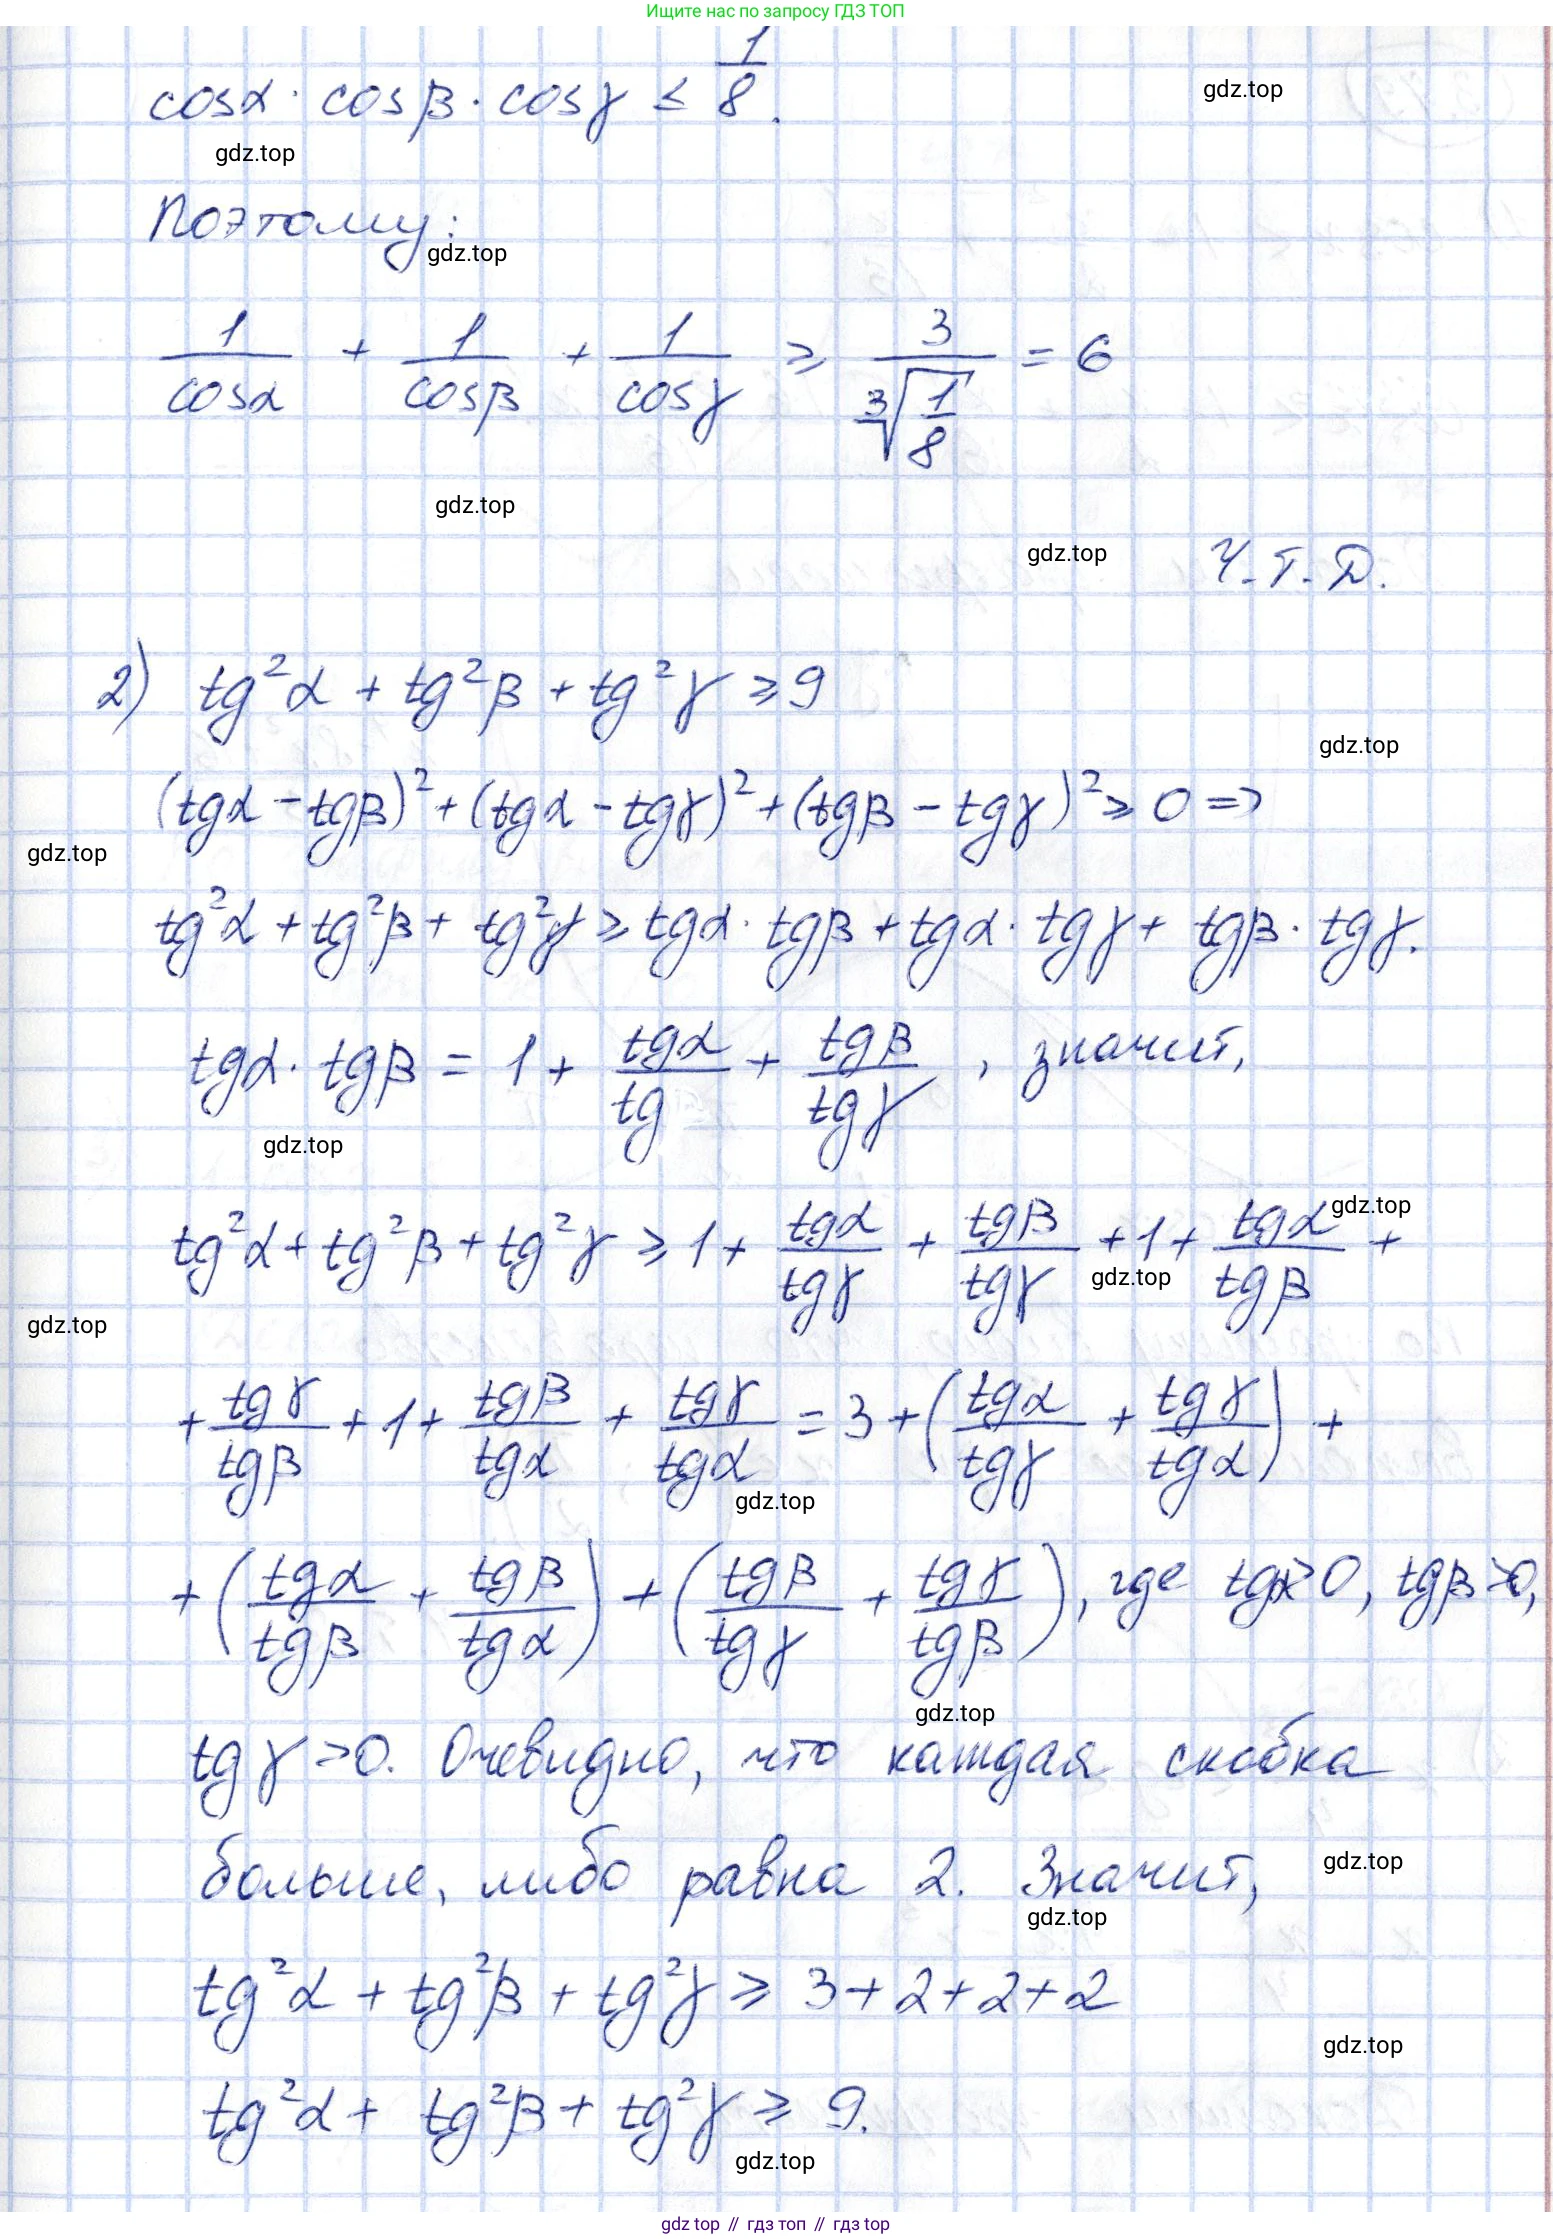 Ищите нас по запросу ГДЗ ТОП
cosα · cosβ · cosγ ≤ 1/8.
gdz.top
gdz.top
Поэтому:
gdz.top
1/cosα + 1/cosβ + 1/cosγ ≥ 3/∛(1/8) = 6
gdz.top
gdz.top
Ч.Т.Д.
2) tg²α + tg²β + tg²γ ≥ 9
gdz.top
(tgα - tgβ)² + (tgα - tgγ)² + (tgβ - tgγ)² ≥ 0 =>
gdz.top
tg²α + tg²β + tg²γ ≥ tgα · tgβ + tgα · tgγ + tgβ · tgγ.
tgα · tgβ = 1 + tgα/tg + tgβ/tgγ, значит,
gdz.top
gdz.top
tg²α + tg²β + tg²γ ≥ 1 + tgα/tgγ + tgβ/tgγ + 1 + tgα/tgβ +
gdz.top
gdz.top
+ tgγ/tgβ + 1 + tgβ/tgα + tgγ/tgα = 3 + (tgα/tgγ + tgγ/tgα) +
gdz.top
+ (tgα/tgβ + tgβ/tgα) + (tgβ/tgγ + tgγ/tgβ), где tgα>0, tgβ>0,
gdz.top
tgγ >0. Очевидно, что каждая скобка
больше, либо равна 2. Значит,
gdz.top
gdz.top
tg²α + tg²β + tg²γ ≥ 3+2+2+2
gdz.top
tg²α + tg²β + tg²γ ≥ 9.
gdz.top
gdz.top // гдз топ // гдз top